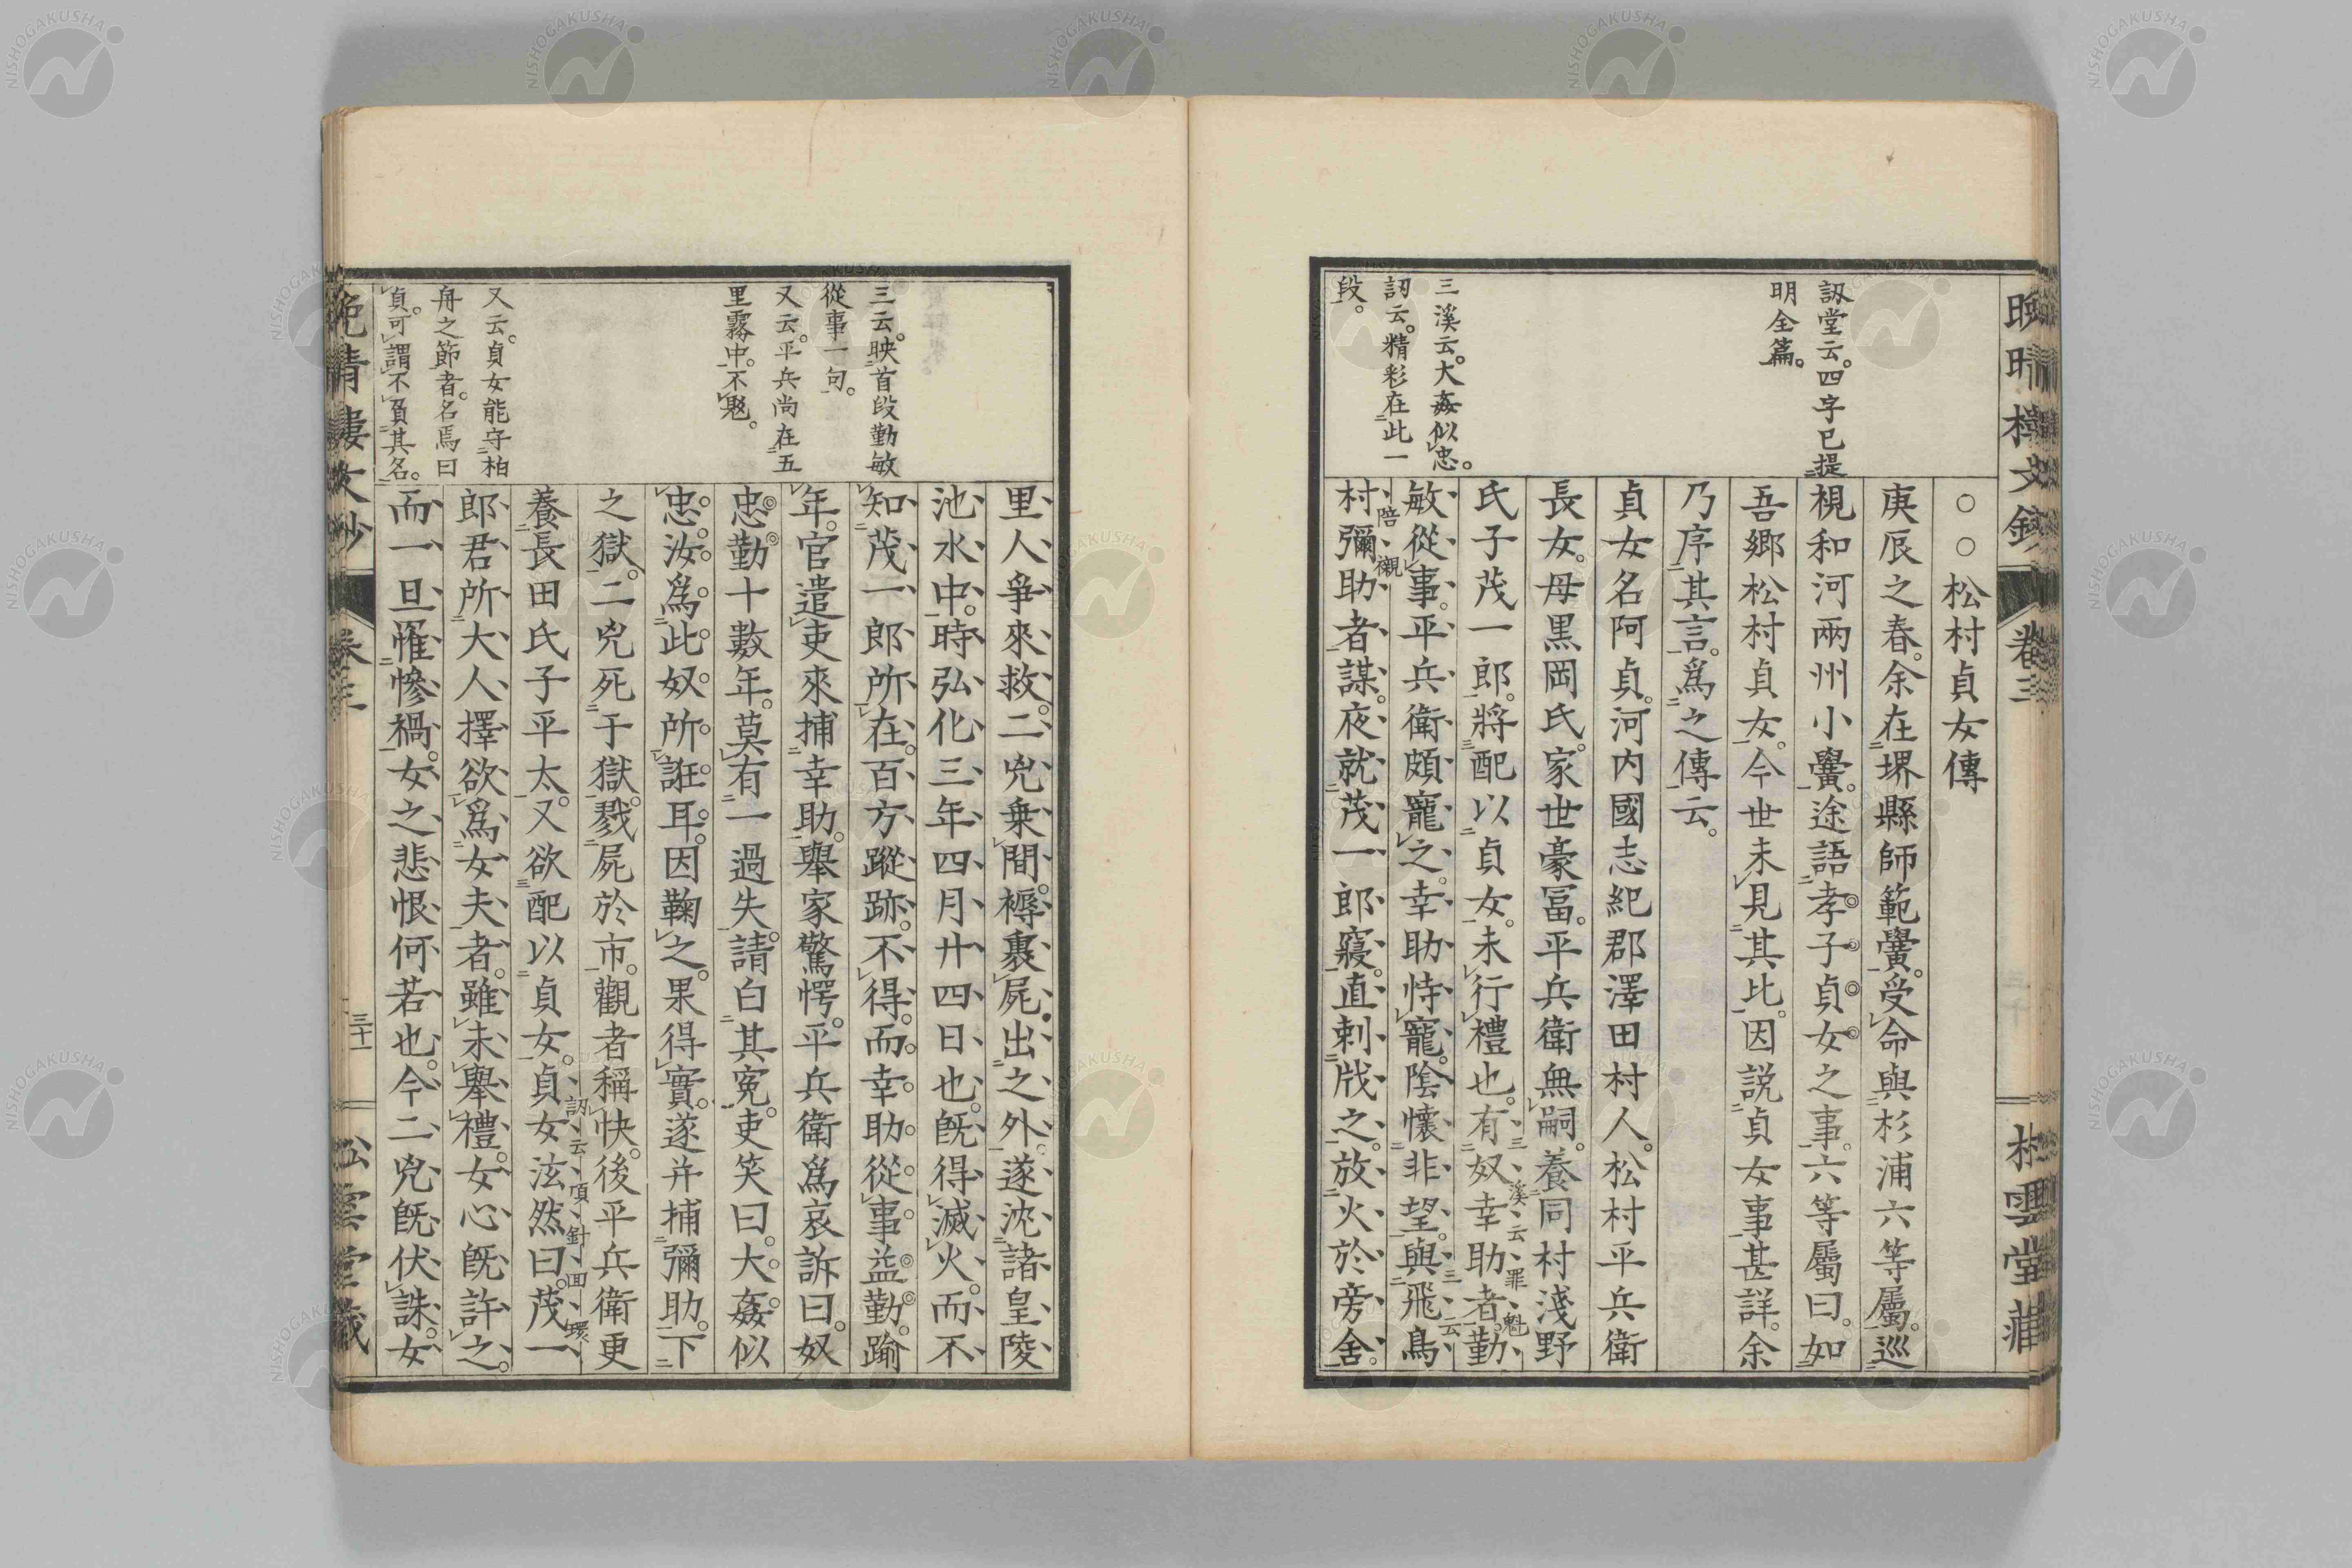 晩晴樓文鈔 卷三 松雲堂藏
訒堂云。四字已提
明全篇。
三溪云。大姦似忠。
訒云。精彩在此一
段。
○○松村貞女傳
庚辰之春。余在堺縣師範黌。受命與杉浦六等屬。巡
視和河兩州小黌。途語孝子貞女之事。六等屬曰。如
吾鄉松村貞女。今世未見其比。因說貞女事甚詳。余
乃序其言。爲之傳云。
貞女名阿貞。河内國志紀郡澤田村人。松村平兵衛
長女。母黑岡氏。家世豪冨。平兵衛無嗣。養同村淺野
氏子茂一郎。將配以貞女。未行禮也。有奴幸助者。勤
三溪云罪魁
敏從事。平兵衛頗寵之。幸助恃寵。陰懷非望。與飛鳥
三云
陪襯
村彌助者謀。夜就茂一郎寢。直刺戕之。放火於旁舍。
三云。映首段勤敏
從事一句。
又云。平兵尚在五
里霧中。不覐。
又云。貞女能守柏
舟之節者。名焉曰
貞。可謂不負其名。
里人爭來救。二兇乗間。褥裹屍。出之外。遂沈諸皇陵
池水中。時弘化三年四月廿四日也。旣得滅火。而不
知茂一郎所在。百方蹤跡。不得。而幸助從事益勤。踰
年。官遣吏來捕幸助。舉家驚愕。平兵衛爲哀訴曰。奴
忠勤十數年。莫有一過失。請白其寃。吏笑曰。大姦似
忠。汝爲此奴所誑耳。因鞠之。果得實。遂幷捕彌助。下
之獄。二兇死于獄。戮屍於市。觀者稱快。後平兵衛更
訒云項針回環
養長田氏子平太。又欲配以貞女。貞女泫然曰。茂一
郎君所大人擇欲爲女夫者。雖未舉禮。女心旣許之。
而一旦罹慘禍。女之悲恨何若也。今二兇旣伏誅。女
晩晴樓文鈔 卷三 三十一 松雲堂藏